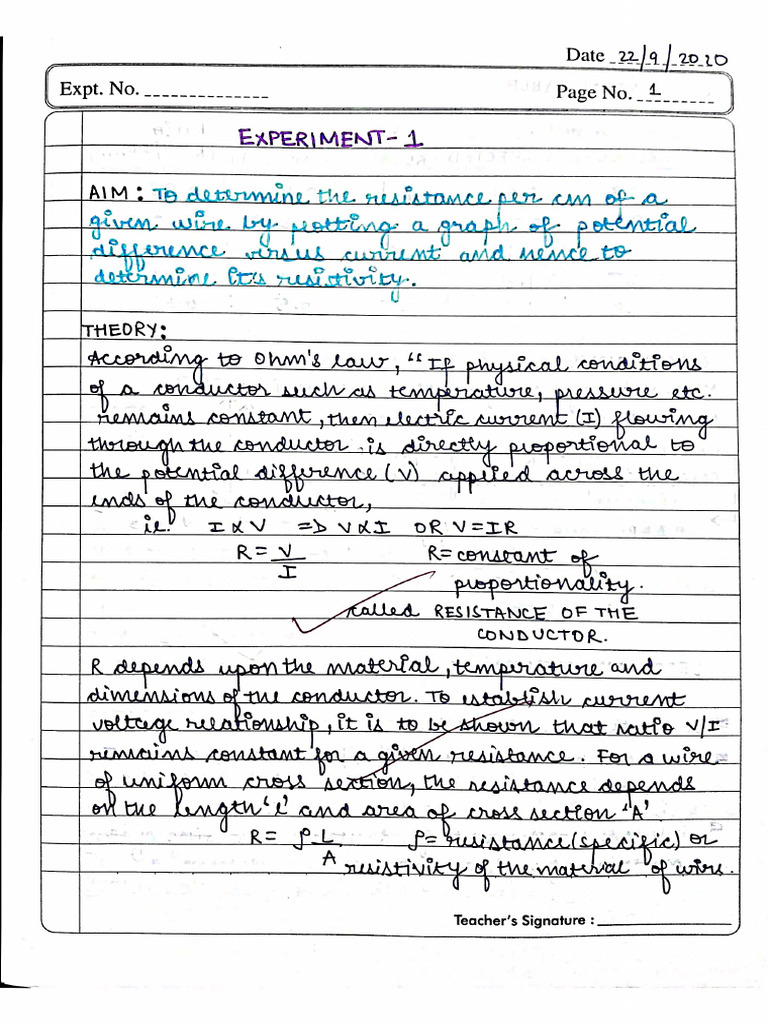 Date 22/9/2020
Expt. No.
Page No. 1
EXPERIMENT-1
AIM: To determine the resistance per cm of a
given wire by plotting a graph of potential
difference versus current and hence to
determine it's resistivity.
THEORY:
According to Ohm's law, "If physical conditions
of a conductor such as temperature, pressure etc.
remains constant, then electric current (I) flowing
through the conductor is directly proportional to
the potential difference (V) applied across the
ends of the conductor,
ie. I ∝ V => V ∝ I OR V=IR
R = V/I R= constant of
proportionality.
called RESISTANCE OF THE
CONDUCTOR.
R depends upon the material, temperature and
dimensions of the conductor. To establish current
voltage relationship, it is to be shown that ratio V/I
remains constant for a given resistance. For a wire
of uniform cross section, the resistance depends
on the length 'l' and area of cross section 'A'.
R = ρ L/A ρ = resistance (specific) or
resistivity of the material of wire.
Teacher's Signature :